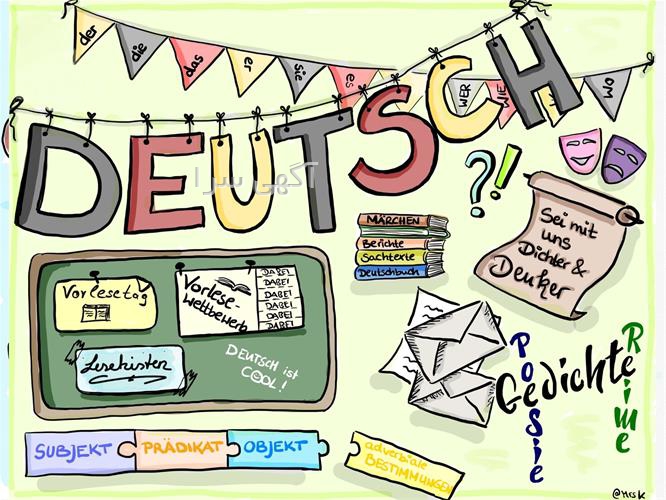 der
die
das
er
sie
es
WER
WIE
WO
DEUTSCH
آگهی سرا
?!
MÄRCHEN
Berichte
Sachtexte
Deutschbuch
Sei mit
uns
Dichter &
Denker
Vorlesetag
Vorlese-
wettbewerb
DABEI
DABEI
DABEI
DABEI
DABEI
DABEI
Lesekisten
DEUTSCH ist
COOL!
Gedichte
Poesie
Reime
SUBJEKT
PRÄDIKAT
OBJEKT
adverbiale
BESTIMMUNGEN